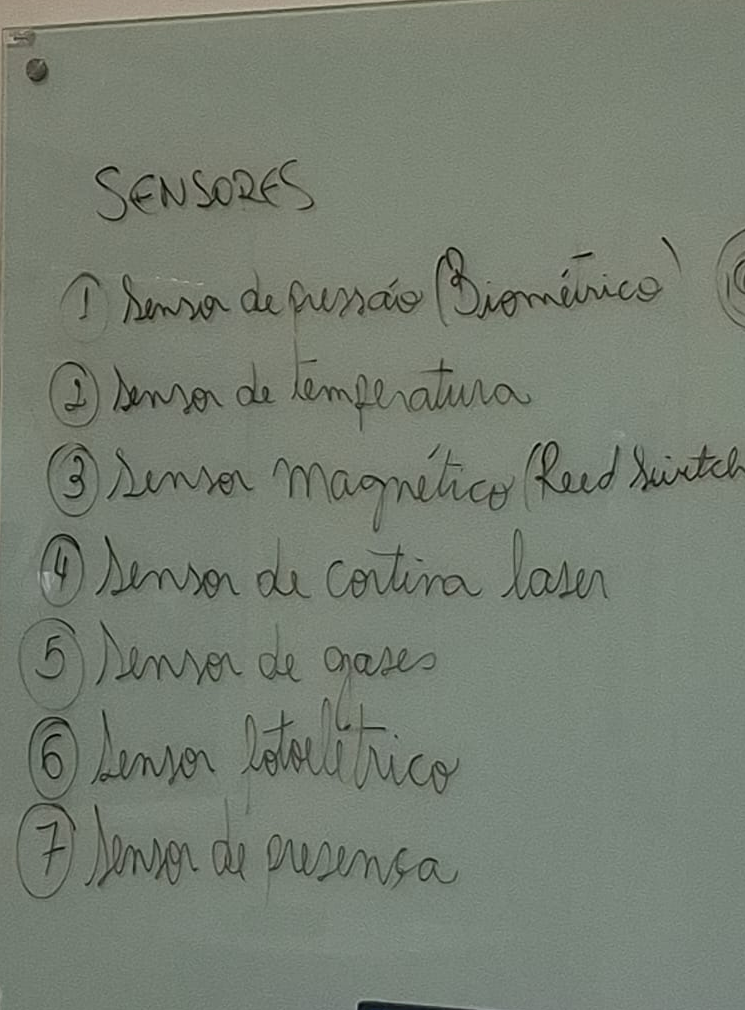 SENSORES
① Sensor de pressão (Biométrico)
② Sensor de temperatura
③ Sensor magnético (Reed Switch
④ Sensor de cortina laser
⑤ Sensor de gases
⑥ Sensor fotoelétrico
⑦ Sensor de presensa